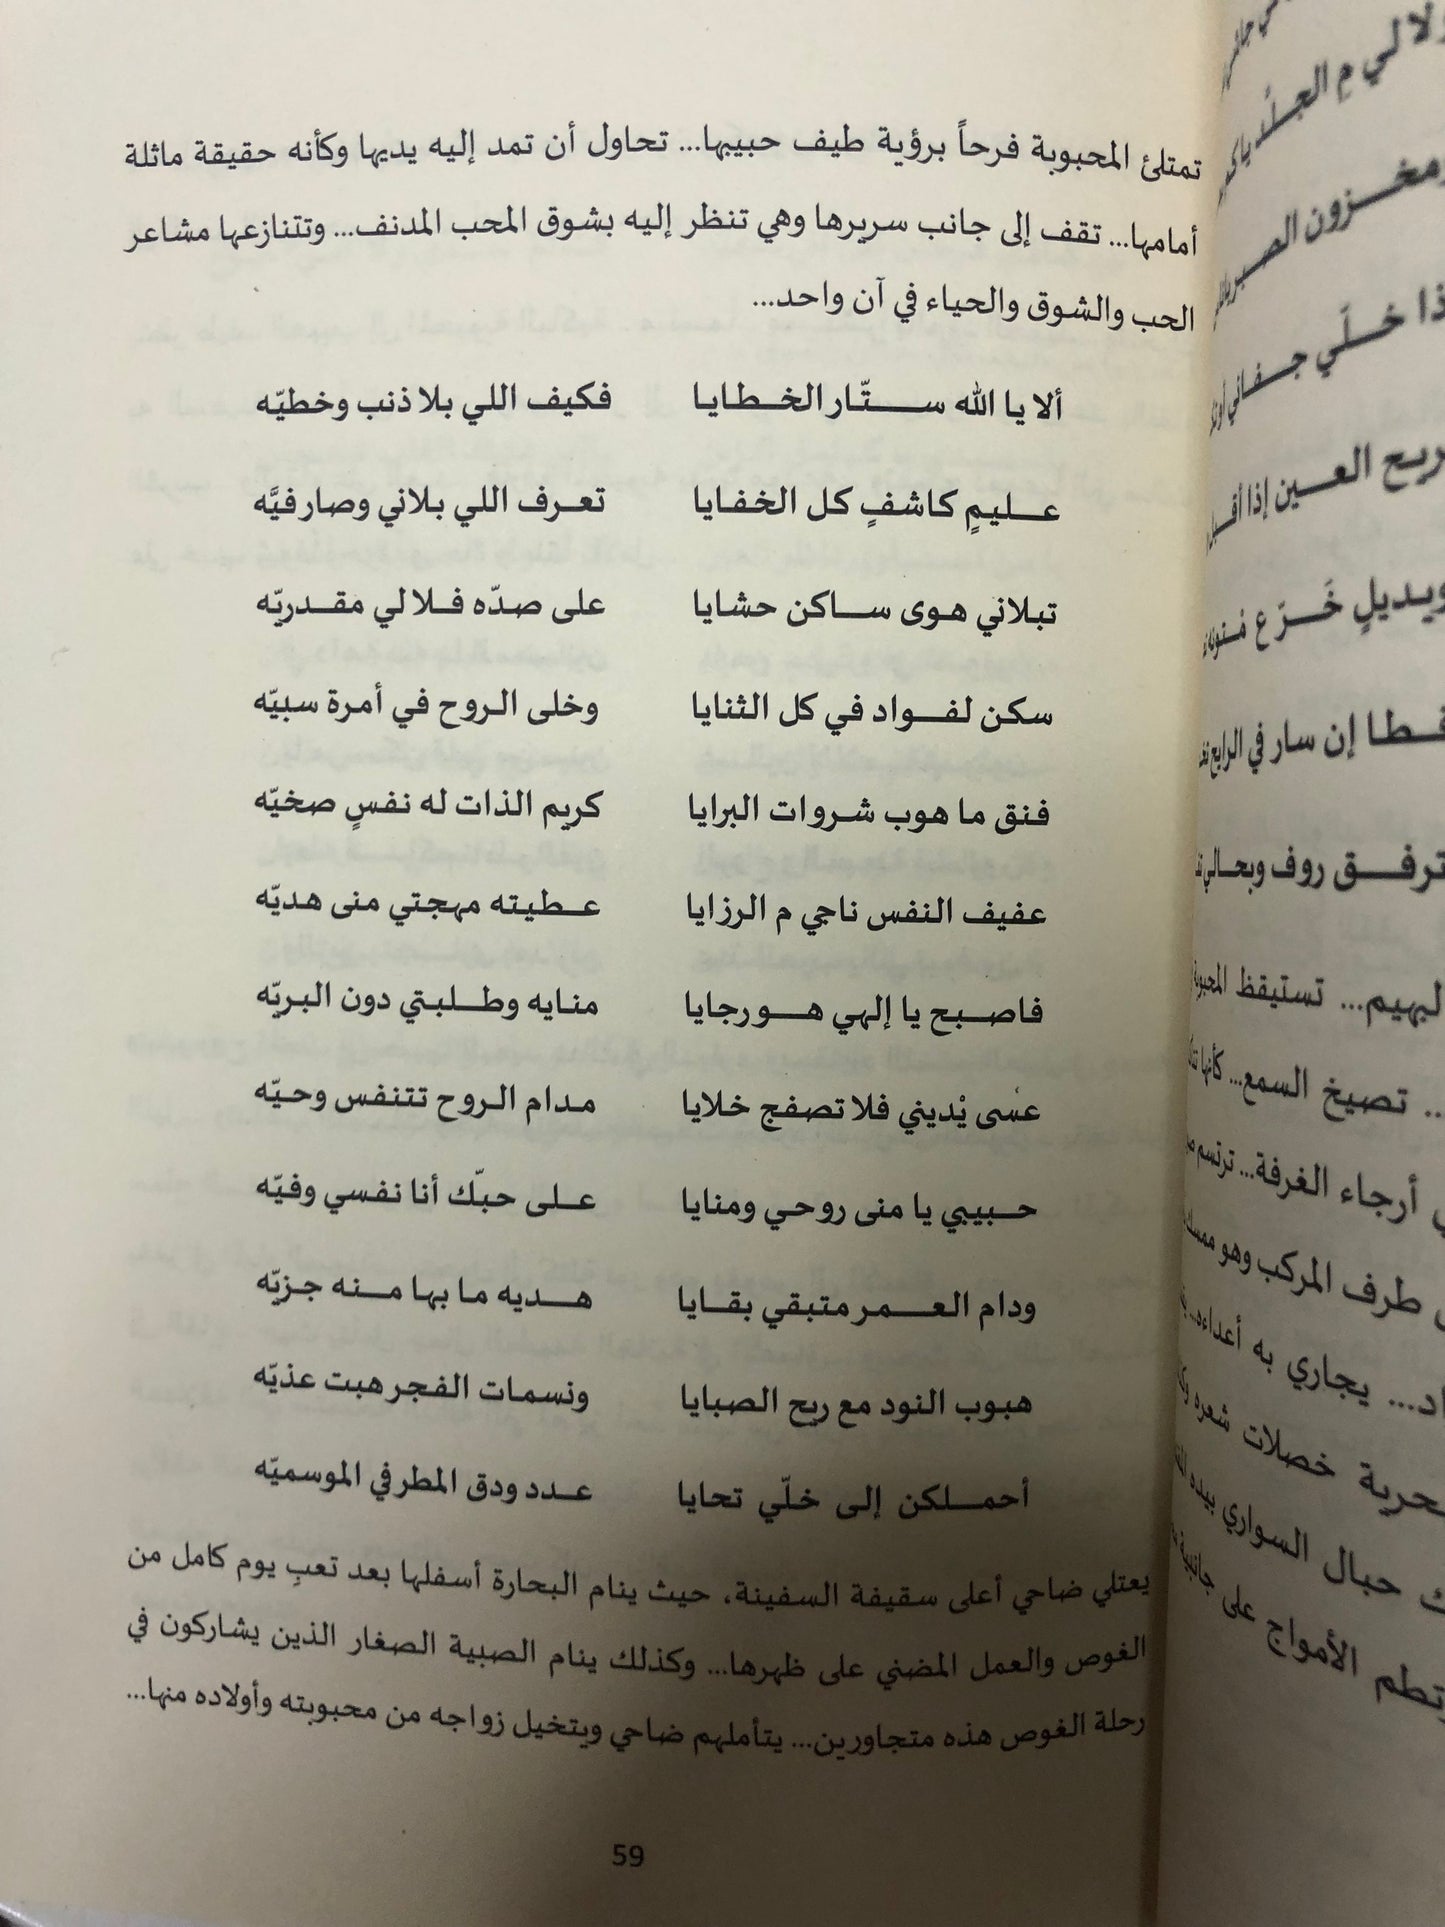 تمتلئ المحبوبة فرحاً برؤية طيف حبيبها... تحاول أن تمد إليه يديها وكأنه حقيقة ماثلة
أمامها... تقف إلى جانب سريرها وهي تنظر إليه بشوق المحب المدنف... وتتنازعها مشاعر
الحب والشوق والحياء في آن واحد...
ألا يا الله ستّار الخطايا فكيف اللي بلا ذنب وخطيّه
عليمٍ كاشفٍ كل الخفايا تعرف اللي بلاني وصار فيَّه
تبلاني هوى ساكن حشايا على صدّه فلا لي مقدريّه
سكن لفواد في كل الثنايا وخلى الروح في أمرة سبيّه
فنق ما هوب شروات البرايا كريم الذات له نفسٍ صخيّه
عفيف النفس ناجي م الرزايا عطيته مهجتي منى هديّه
فاصبح يا إلهي هو رجايا منايه وطلبتي دون البريّه
عسى يْديني فلا تصفج خلايا مدام الروح تتنفس وحيّه
حبيبي يا منى روحي ومنايا على حبّك أنا نفسي وفيّه
ودام العمر متبقي بقايا هديه ما بها منه جزيّه
هبوب النود مع ريح الصبايا ونسمات الفجر هبت عذيّه
أحملكن إلى خلّي تحايا عدد ودق المطر في الموسميّه
يعتلي ضاحي أعلى سقيفة السفينة، حيث ينام البحارة أسفلها بعد تعبِ يوم كامل من
الغوص والعمل المضني على ظهرها... وكذلك ينام الصبية الصغار الذين يشاركون في
رحلة الغوص هذه متجاورين... يتأملهم ضاحي ويتخيل زواجه من محبوبته وأولاده منها...
59
ولا لي مِ الجلَد
مخزون الصبر
ذا خلّي جفاني
ريح العين إذا
ويديلٍ خَرّع
قطا إن سار في الرابع
ترفق روف وبحالي
البهيم... تستيقظ
... تصيخ السمع... كأنها
أرجاء الغرفة... ترتسم
طرف المركب وهو
... يجاري به أعداءه...
خصلات شعره
حبال السواري بيده
الأمواج على